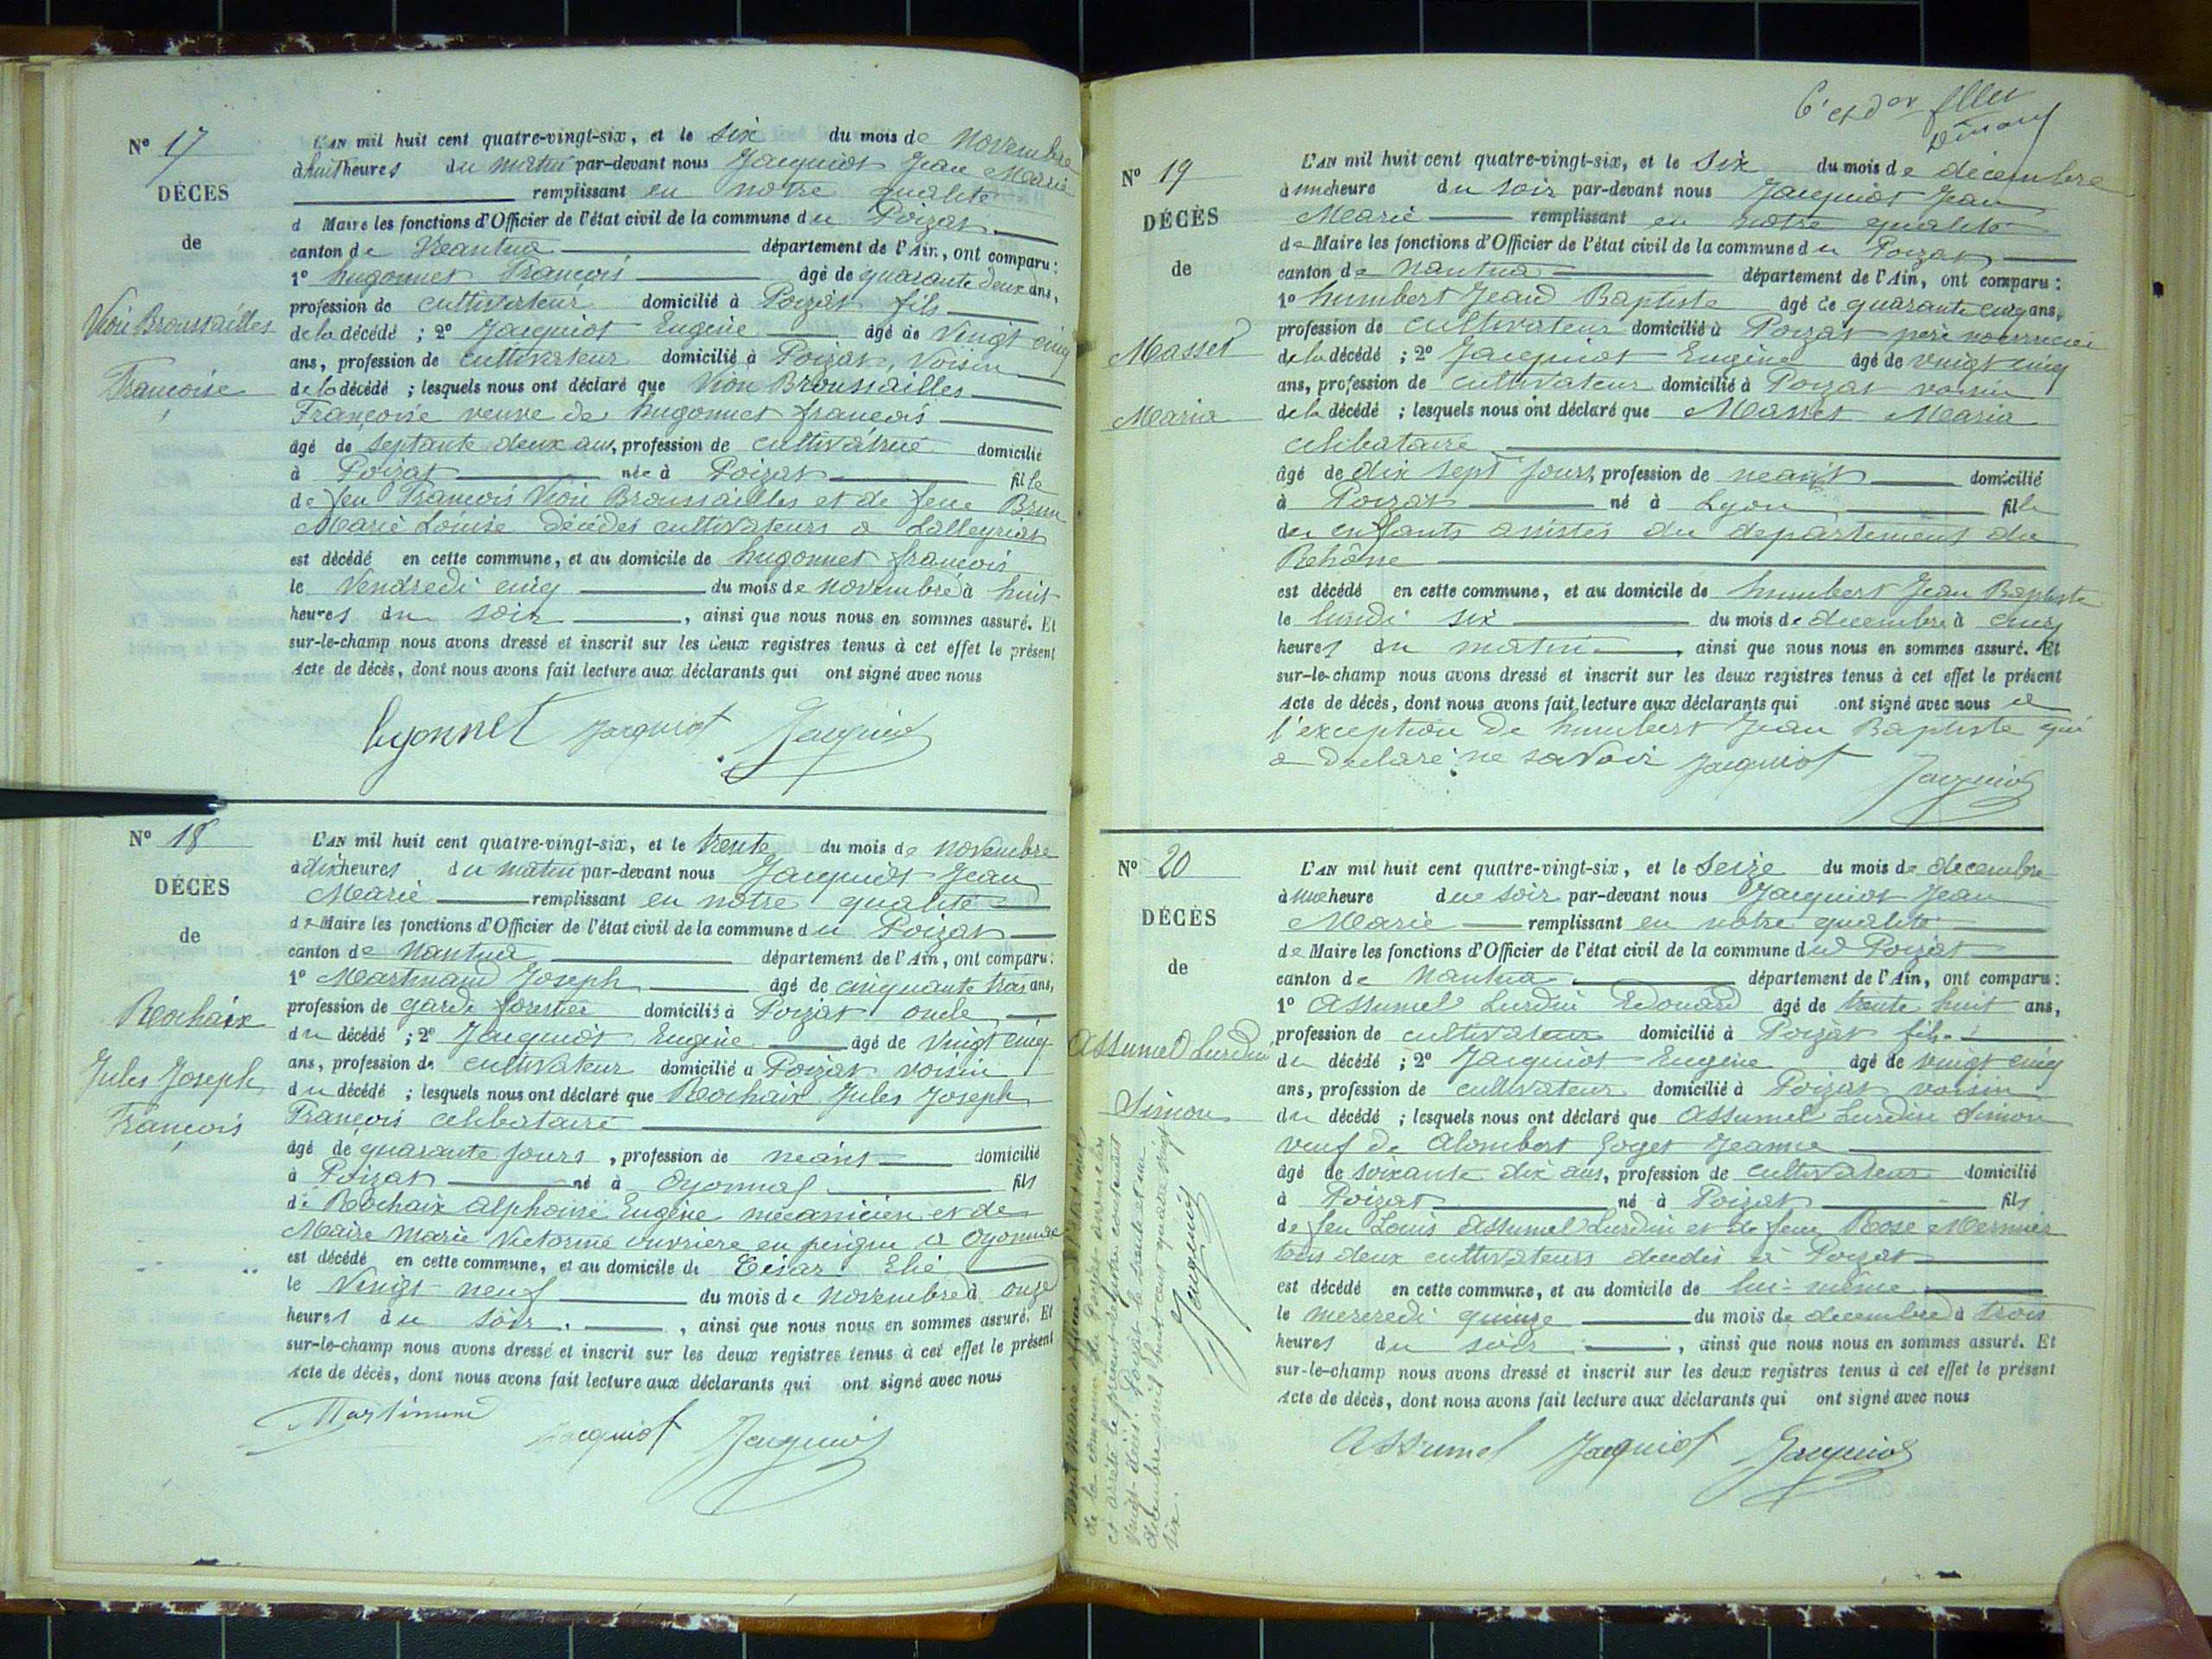 N° 17
DÉCÈS
de
Vion Broussailles
Françoise
L'AN mil huit cent quatre-vingt-six, et le six du mois de Novembre
à huit heures du matin par-devant nous Jacquiot Jean Marie
remplissant en notre qualité
d Maire les fonctions d'Officier de l'état civil de la commune du Poizat
canton de Nantua département de l'Ain, ont comparu :
1° hugonnet François âgé de quarante deux ans,
profession de cultivateur domicilié à Poizat fils
de la décédé ; 2° Jacquiot Eugène âgé de vingt cinq
ans, profession de cultivateur domicilié à Poizat, Voisin
de la décédé ; lesquels nous ont déclaré que Vion Broussailles
Françoise veuve de hugonnet françois
âgé de septante deux ans, profession de cultivatrice domicilié
à Poizat née à Poizat fille
de feu François Vion Broussailles et de feue Brun
Marie Louise décédés cultivateurs a Lalleyriat
est décédé en cette commune, et au domicile de hugonnet françois
le Vendredi cinq du mois de novembre à huit
heures du soir, ainsi que nous nous en sommes assuré. Et
sur-le-champ nous avons dressé et inscrit sur les deux registres tenus à cet effet le présent
Acte de décès, dont nous avons fait lecture aux déclarants qui ont signé avec nous
Jacquiot Jacquiot
N° 18
DÉCÈS
de
Rochaix
Jules Joseph
François
L'AN mil huit cent quatre-vingt-six, et le trente du mois de novembre
à dix heures du matin par-devant nous Jacquiot Jean
Marie remplissant en notre qualité
de Maire les fonctions d'Officier de l'état civil de la commune du Poizat
canton de Nantua département de l'Ain, ont comparu :
1° Martinand Joseph âgé de cinquante trois ans,
profession de garde forestier domicilié à Poizat oncle
du décédé ; 2° Jacquiot Eugène âgé de vingt cinq
ans, profession de cultivateur domicilié à Poizat voisin
du décédé ; lesquels nous ont déclaré que Rochaix Jules Joseph
François celibataire
âgé de quarante jours, profession de néant domicilié
à Poizat né à Oyonnax fils
de Rochaix Alphonse Eugène mécanicien et de
Maire Marie Victorine ouvrière en peigne a Oyonnax
est décédé en cette commune, et au domicile de César Elie
le Vingt neuf du mois de novembre à onze
heures du soir, ainsi que nous nous en sommes assuré. Et
sur-le-champ nous avons dressé et inscrit sur les deux registres tenus à cet effet le présent
Acte de décès, dont nous avons fait lecture aux déclarants qui ont signé avec nous
Martinand Jacquiot Jacquiot
N° 19
DÉCÈS
de
Masset
Maria
L'AN mil huit cent quatre-vingt-six, et le six du mois de décembre
à une heure du soir par-devant nous Jacquiot Jean
Marie remplissant en notre qualité
de Maire les fonctions d'Officier de l'état civil de la commune du Poizat
canton de Nantua département de l'Ain, ont comparu :
1° humbert Jean Baptiste âgé de quarante cinq ans,
profession de cultivateur domicilié à Poizat père nourricier
de la décédé ; 2° Jacquiot Eugène âgé de vingt cinq
ans, profession de cultivateur domicilié à Poizat voisin
de la décédé ; lesquels nous ont déclaré que Masset Maria
celibataire
âgé de dix sept jours, profession de neant domicilié
à Poizat né à Lyon fille
des enfants assistés du departement du
Rhône
est décédé en cette commune, et au domicile de humbert Jean Baptiste
le lundi six du mois de decembre à cinq
heures du matin, ainsi que nous nous en sommes assuré. Et
sur-le-champ nous avons dressé et inscrit sur les deux registres tenus à cet effet le présent
Acte de décès, dont nous avons fait lecture aux déclarants qui ont signé avec nous a
l'exception de humbert Jean Baptiste qui
a declaré ne savoir Jacquiot Jacquiot
N° 20
DÉCÈS
de
Assumel Lurdin
Simon
L'AN mil huit cent quatre-vingt-six, et le seize du mois de decembre
à une heure du soir par-devant nous Jacquiot Jean
Marie remplissant en notre qualité
de Maire les fonctions d'Officier de l'état civil de la commune du Poizat
canton de Nantua département de l'Ain, ont comparu :
1° Assumel Lurdin Edouard âgé de trente huit ans,
profession de cultivateur domicilié à Poizat fils
du décédé ; 2° Jacquiot Eugène âgé de vingt cinq
ans, profession de cultivateur domicilié à Poizat voisin
du décédé ; lesquels nous ont déclaré que Assumel Lurdin Simon
veuf de Alombert Goget Jeanne
âgé de soixante dix ans, profession de cultivateur domicilié
à Poizat né à Poizat fils
de feu Louis Assumel Lurdin et de feue Rose Mermier
tous deux cultivateurs decedés à Poizat
est décédé en cette commune, et au domicile de lui-même
le mercredi quinze du mois de decembre à trois
heures du soir, ainsi que nous nous en sommes assuré. Et
sur-le-champ nous avons dressé et inscrit sur les deux registres tenus à cet effet le présent
Acte de décès, dont nous avons fait lecture aux déclarants qui ont signé avec nous
Assumel Jacquiot Jacquiot
Nous maire officier de l'état civil
de la commune du Poizat avons clos
et arrêté le présent registre contenant
vingt décès. Poizat le trente et un
décembre mil huit cent quatre vingt
six.
Jacquiot